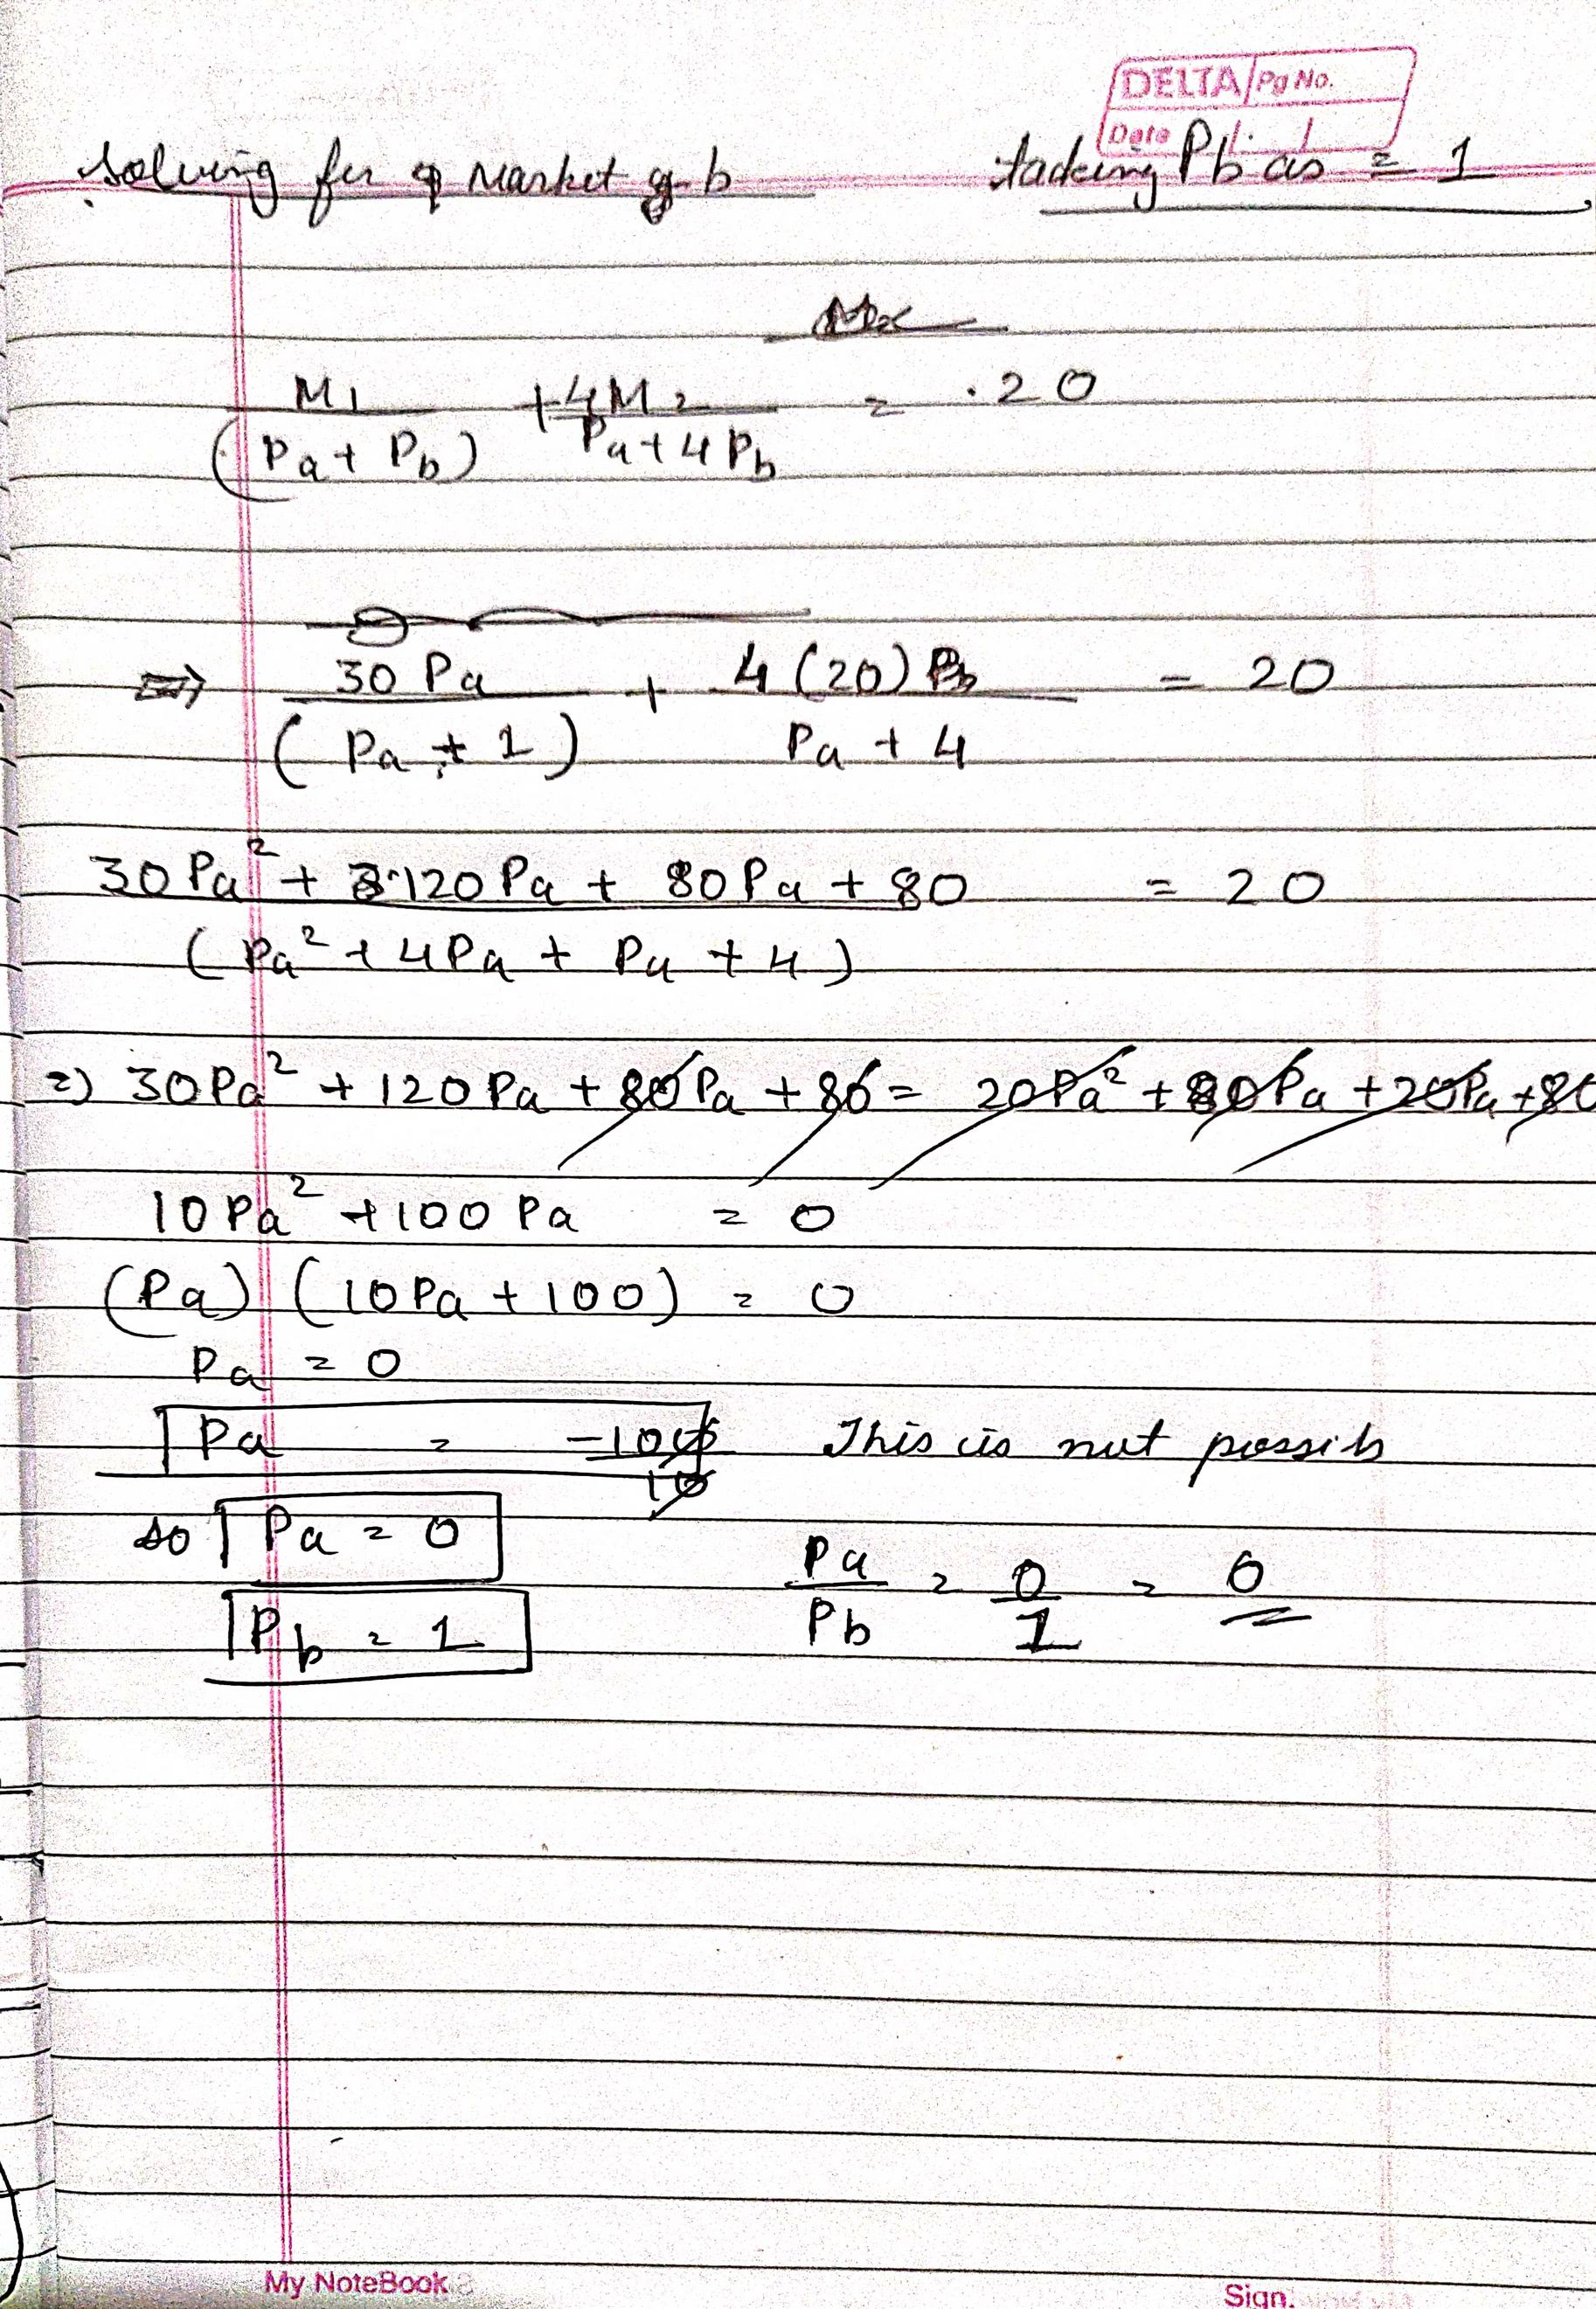 DELTA Pg No.
Date / /
solving for market of b tacking Pb as = 1
M1 / (Pa + Pb) + 4M2 / Pa + 4Pb = 20
=> 30 Pa / (Pa + 1) + 4 (20) Pb / Pa + 4 = 20
30 Pa² + 120 Pa + 80 Pa + 80 = 20
(Pa² + 4Pa + Pa + 4)
=) 30Pa² + 120Pa + 80Pa + 80 = 20Pa² + 80Pa + 20Pa + 80
10Pa² + 100 Pa = 0
(Pa) (10Pa + 100) = 0
Pa = 0
Pa = -100 / 10 This is not possib
so Pa = 0
Pa / Pb = 0 / 1 = 0
Pb = 1
My NoteBook
Sign.